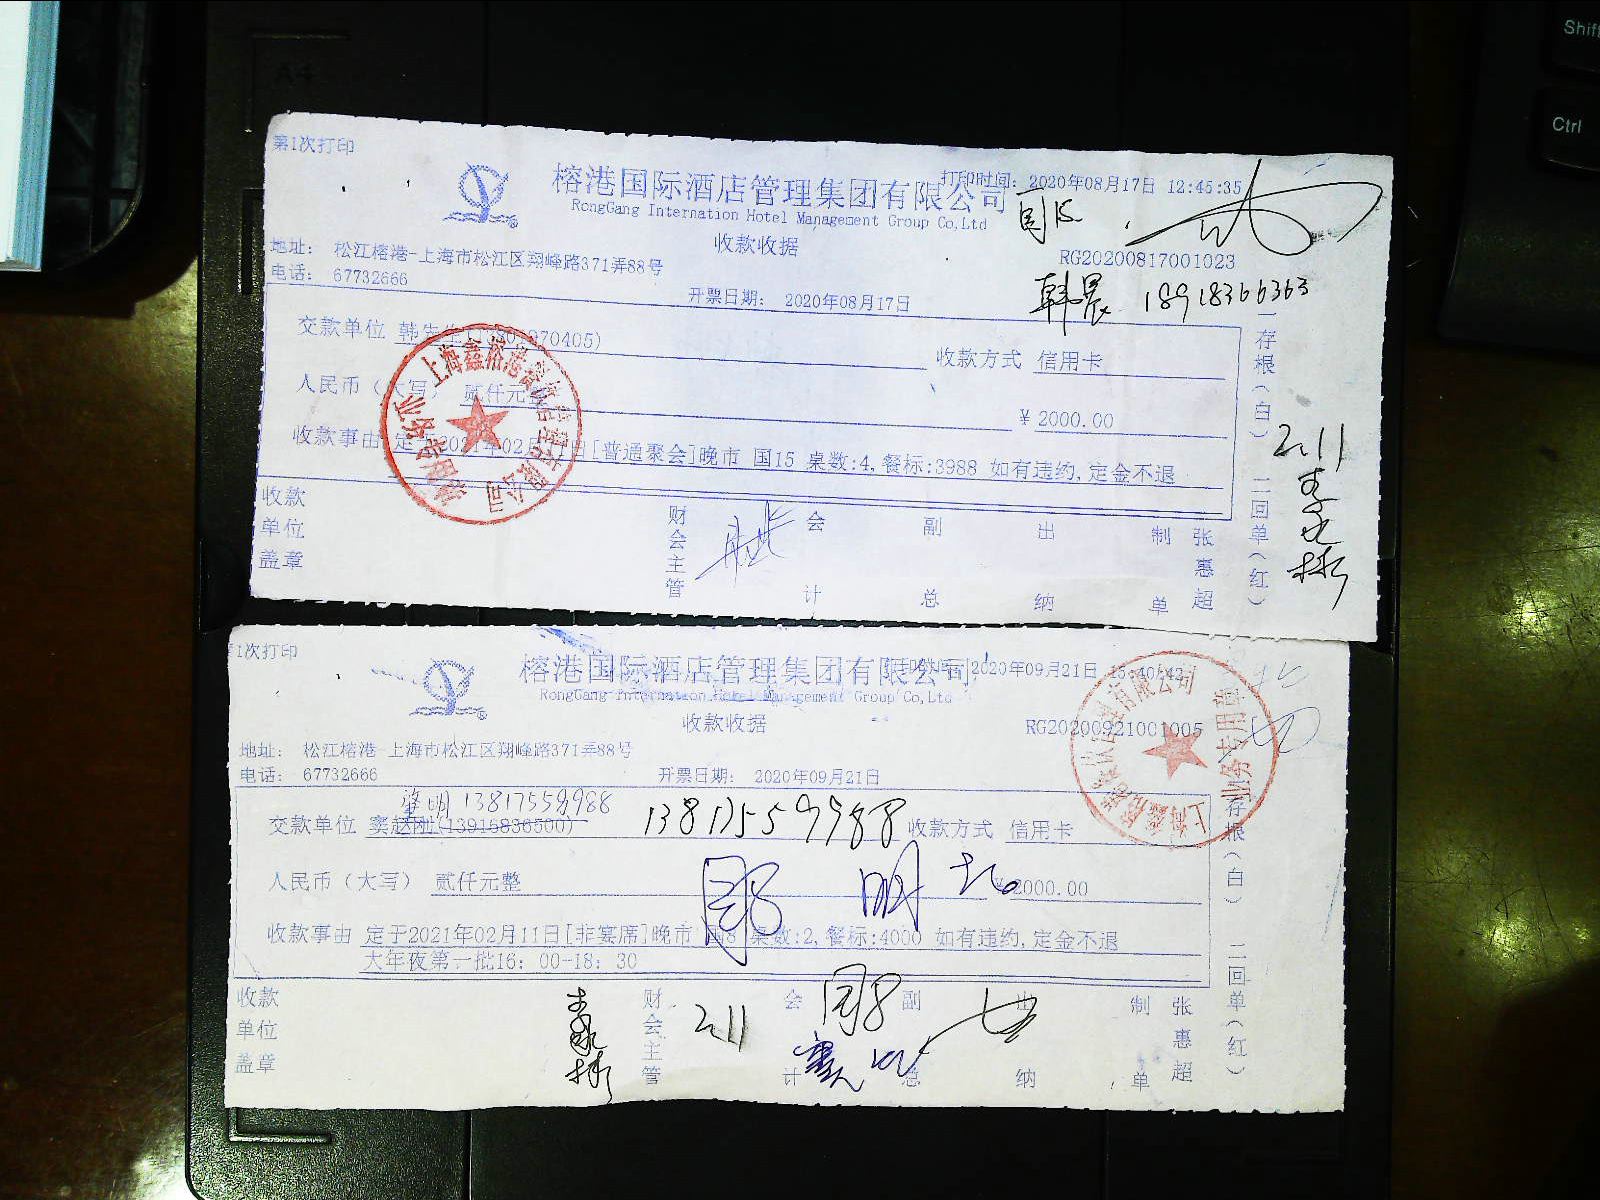 Shift
Ctrl
第1次打印
榕港国际酒店管理集团有限公司
打印时间: 2020年08月17日 12:45:35
RongGang Internation Hotel Management Group Co,Ltd
国15
收款收据
RG20200817001023
地址: 松江榕港-上海市松江区翔峰路371弄88号
电话: 67732666
开票日期: 2020年08月17日
韩晨 18918366363
交款单位 韩先生
70405)
收款方式 信用卡
人民币(大写) 贰仟元整
¥ 2000.00
收款事由 定于2021年02月11日[普通聚会]晚市 国15 桌数:4,餐标:3988 如有违约,定金不退
一存根(白) 二回单(红)
2.11
收款单位盖章
财会主管
会计
副总
出纳
制单
张惠超
1次打印
榕港国际酒店管理集团有限公司
2020年09月21日 15:40:42
RongGang Internation Hotel Management Group Co,Ltd
收款收据
RG20200921001005
地址: 松江榕港-上海市松江区翔峰路371弄88号
电话: 67732666
开票日期: 2020年09月21日
13817559988
交款单位 窦赵刚(13916836500)
13817559988
收款方式 信用卡
人民币(大写) 贰仟元整
¥2000.00
收款事由 定于2021年02月11日[非宴席]晚市 国8 桌数:2,餐标:4000 如有违约,定金不退
大年夜第一批16: 00-18: 30
存根(白) 二回单(红)
收款单位盖章
财会主管
2.11
会计
国8
副总
出纳
制单
张惠超
业务专用章